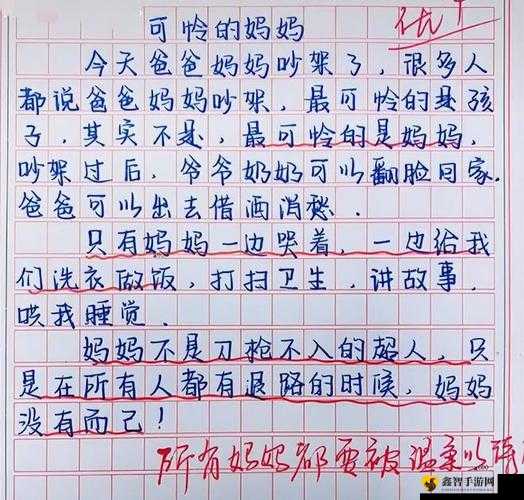 可怜的妈妈
优+
今天爸爸妈妈吵架了，很多人
都说爸爸妈妈吵架，最可怜的是孩
子，其实不是，最可怜的是妈妈，
吵架过后，爷爷奶奶可以翻脸回家，
爸爸可以出去借酒消愁．
只有妈妈一边哭着，一边给我
们洗衣做饭，打扫卫生，讲故事，
哄我睡觉．
妈妈不是刀枪不入的超人，只
是在所有人都有退路的时候，妈妈
没有而已！
所有妈妈都要被温柔以待
鑫智手游网